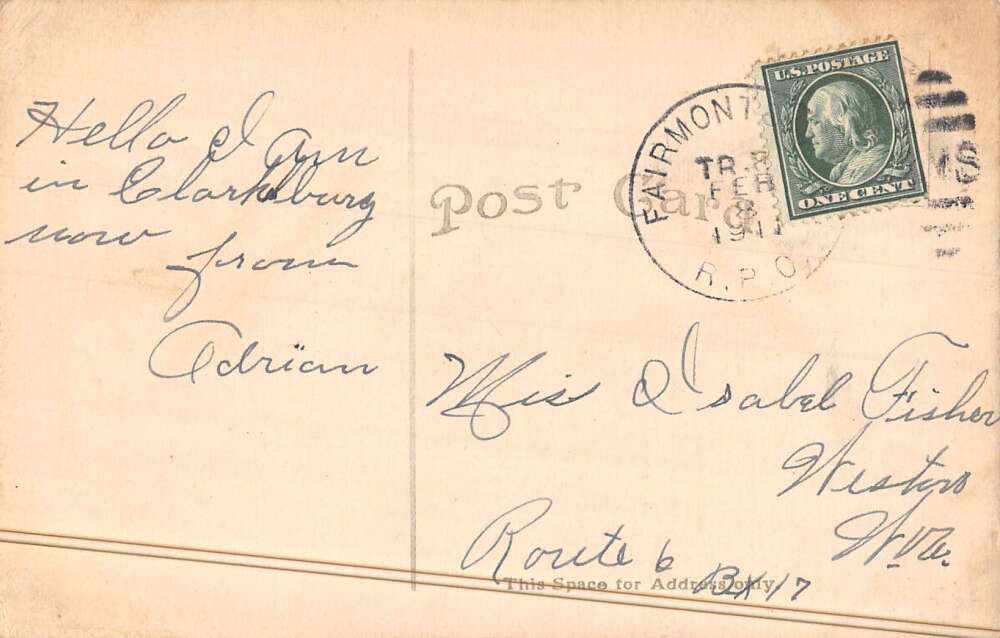 Hello I am
in Clarksburg
now
from
Adrian
Post Card
U.S. POSTAGE
ONE CENT
FAIRMONT
TR.
FEB
8
1911
R.P.O.
MS
Mis Isabel Fisher
Weston
W.Va.
Route 6 Bx 17
This Space for Address only.